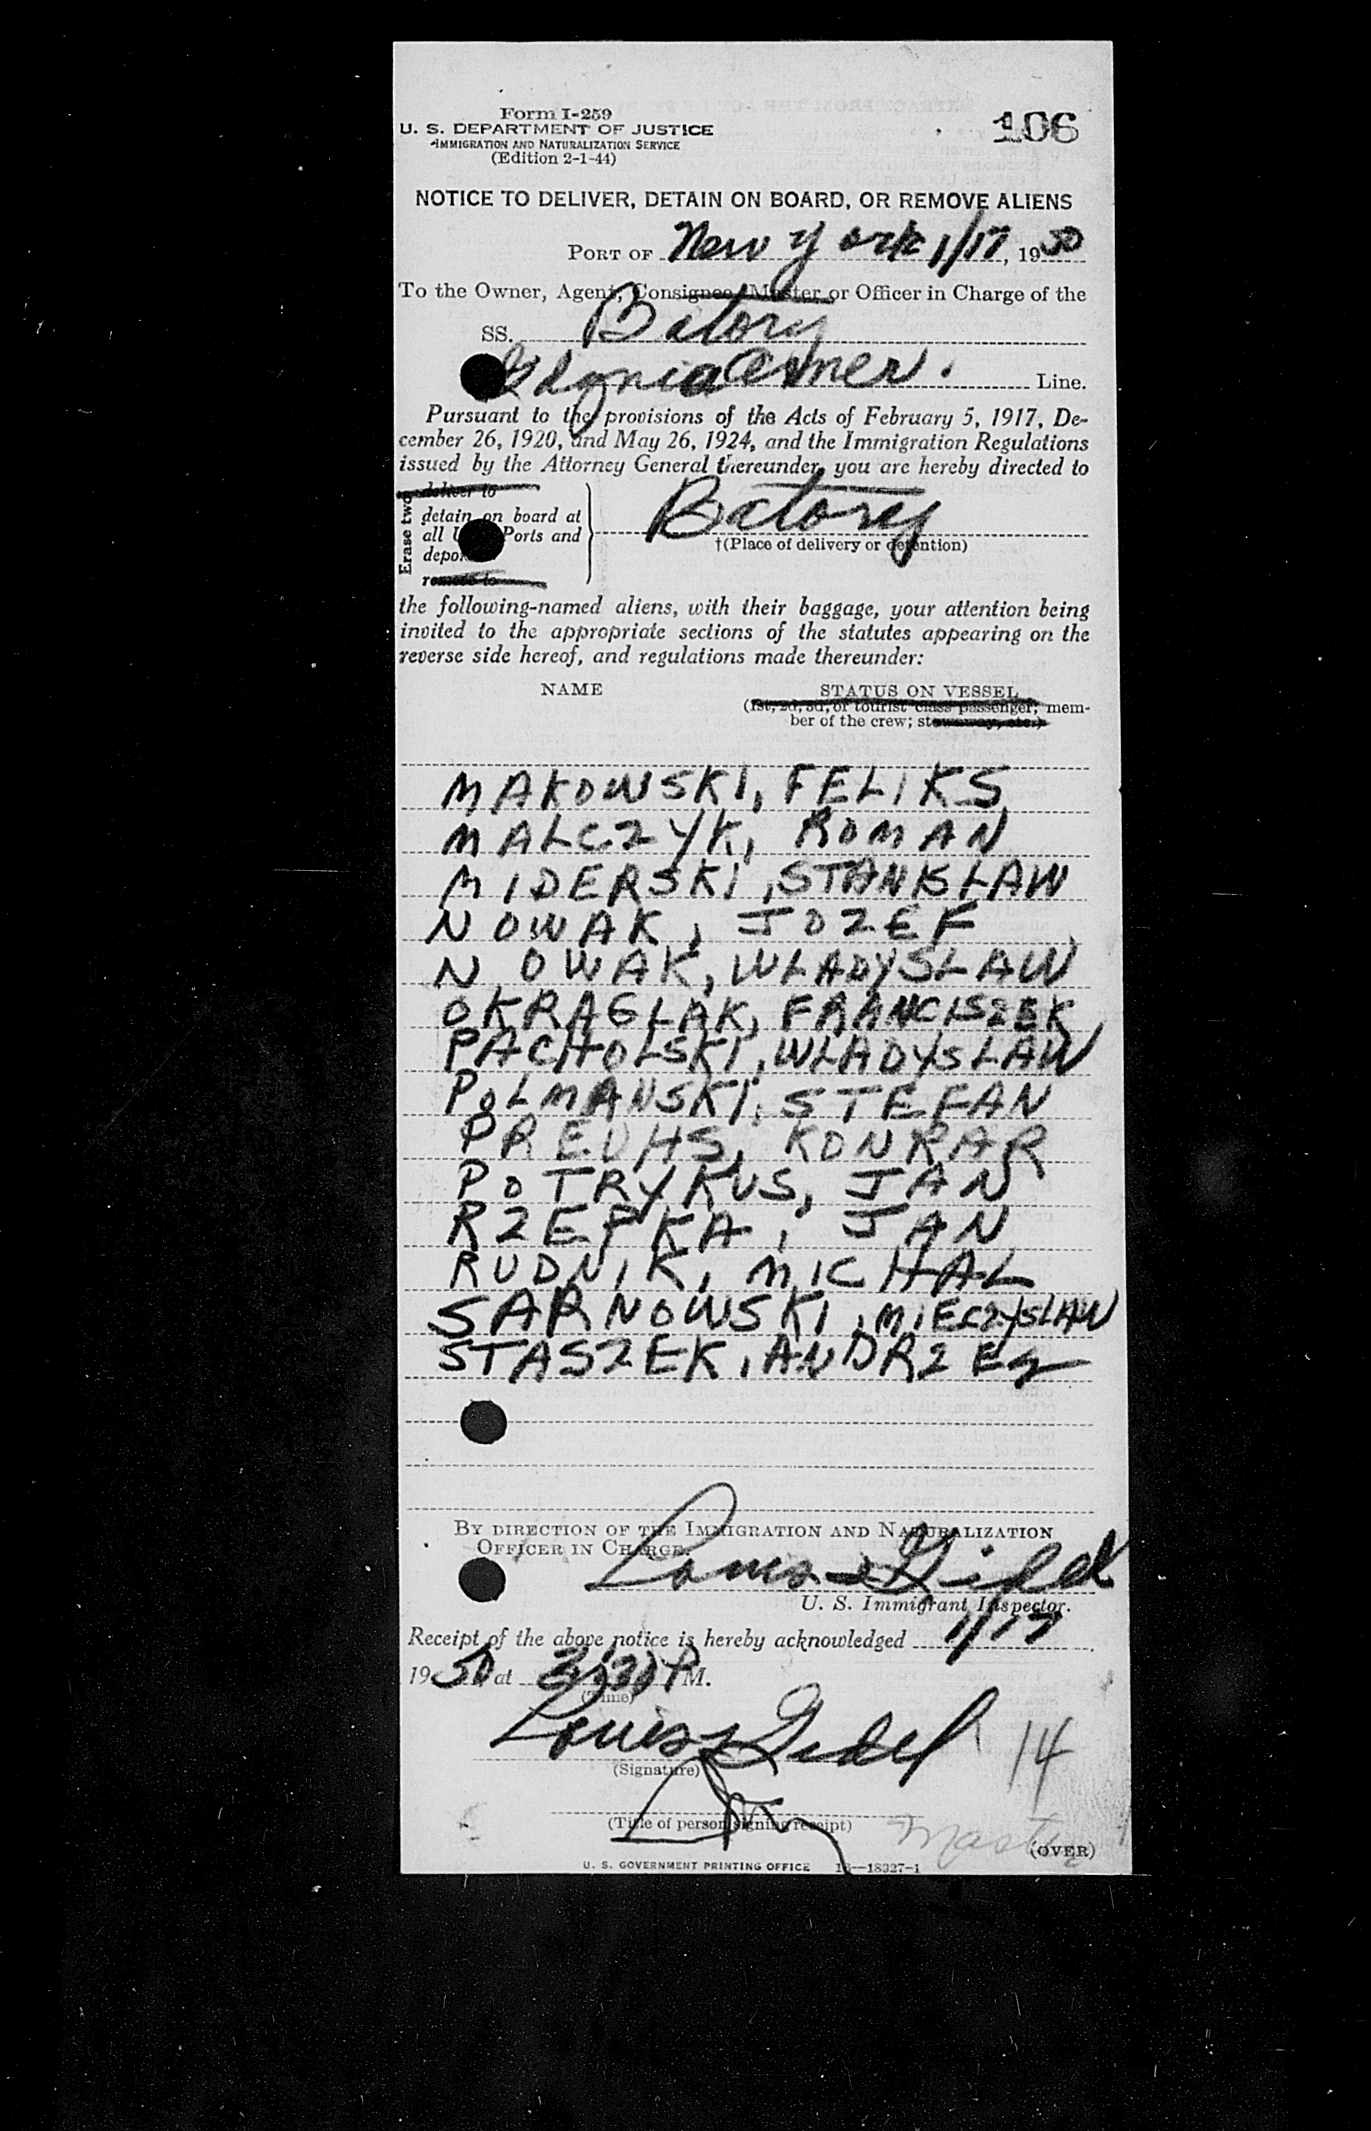 Form I-259
U. S. DEPARTMENT OF JUSTICE
IMMIGRATION AND NATURALIZATION SERVICE
(Edition 2-1-44)
106
NOTICE TO DELIVER, DETAIN ON BOARD, OR REMOVE ALIENS
PORT OF New York 1/17, 1950
To the Owner, Agent, Consignee, Master or Officer in Charge of the
SS. Batory
Gdynia Amer. Line.
Pursuant to the provisions of the Acts of February 5, 1917, De-
cember 26, 1920, and May 26, 1924, and the Immigration Regulations
issued by the Attorney General thereunder, you are hereby directed to
Erase two
deliver to
detain on board at
all U Ports and
depor
remove to
Batory
†(Place of delivery or detention)
the following-named aliens, with their baggage, your attention being
invited to the appropriate sections of the statutes appearing on the
reverse side hereof, and regulations made thereunder:
NAME
STATUS ON VESSEL
(1st, 2d, 3d, or tourist class passenger; mem-
ber of the crew; stowaway, etc.)
MAKOWSKI, FELIKS
MALCZYK, ROMAN
MIDERSKI, STANISLAW
NOWAK, JOZEF
NOWAK, WLADYSLAW
OKRAGLAK, FRANCISZEK
PACHOLSKI, WLADYSLAW
POLMANSKI, STEFAN
PREUHS, KONRAR
POTRYKUS, JAN
RZEPKA, JAN
RUDNIK, MICHAL
SARNOWSKI, MIECZYSLAW
STASZEK, ANDRZEJ
BY DIRECTION OF THE IMMIGRATION AND NATURALIZATION
OFFICER IN CHARGE.
Louis Gidel
U. S. Immigrant Inspector.
Receipt of the above notice is hereby acknowledged 1/17
1950 at 3:30 P M.
(Time)
Louis Gidel
14
(Signature)
(Title of person signing receipt)
Master
(OVER)
U. S. GOVERNMENT PRINTING OFFICE 16—18327-1